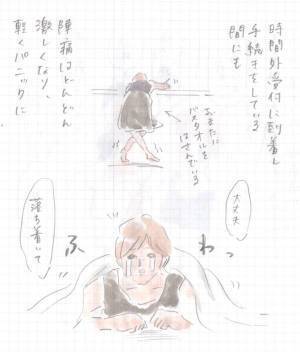 時間外受付に到着し
手続きをしている
間にも
陣痛はどんどん
激しくなり、
軽くパニックに
おまたに
バスタオルを
はさんでいる
大丈夫
ふわっ
落ち着いて